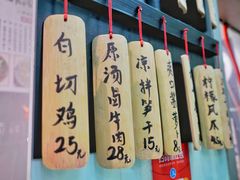 白切鸡
25元
原汤卤牛肉
28元
凉拌笋干
15元
8元
柠檬凤爪